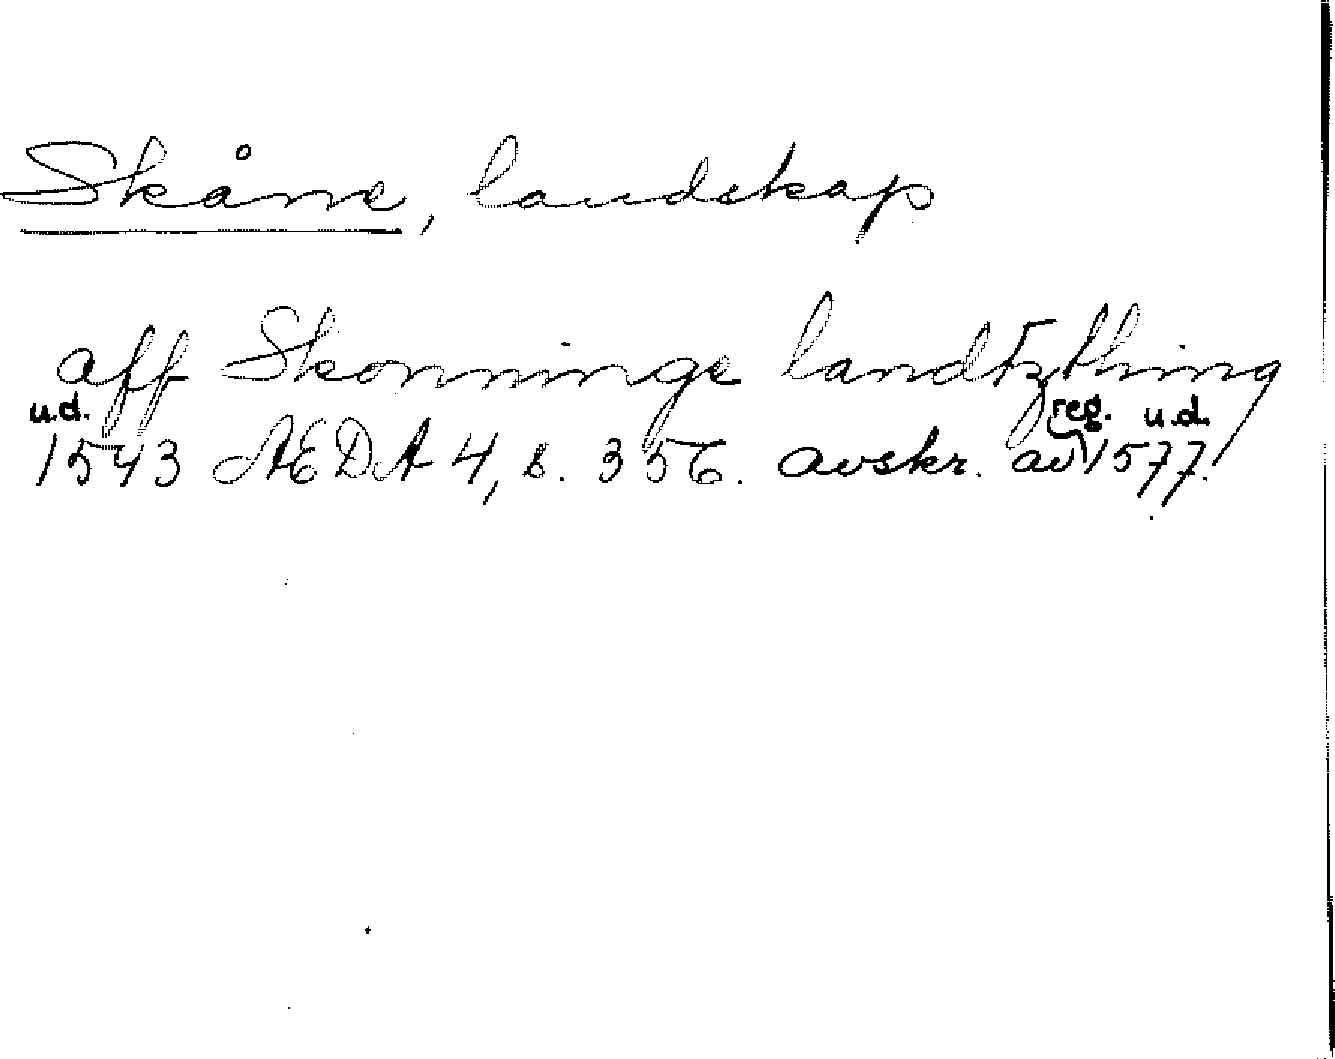 Skåne, landskap
aff Skonninge landtzthing
u.d. reg. u.d.
1543 AEDA 4, s. 356. avskr. av 1577.